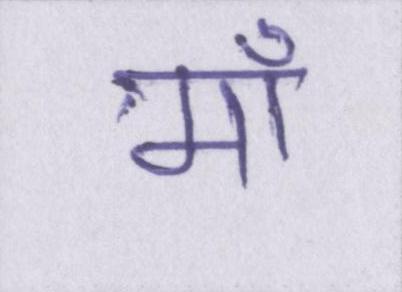 माँ